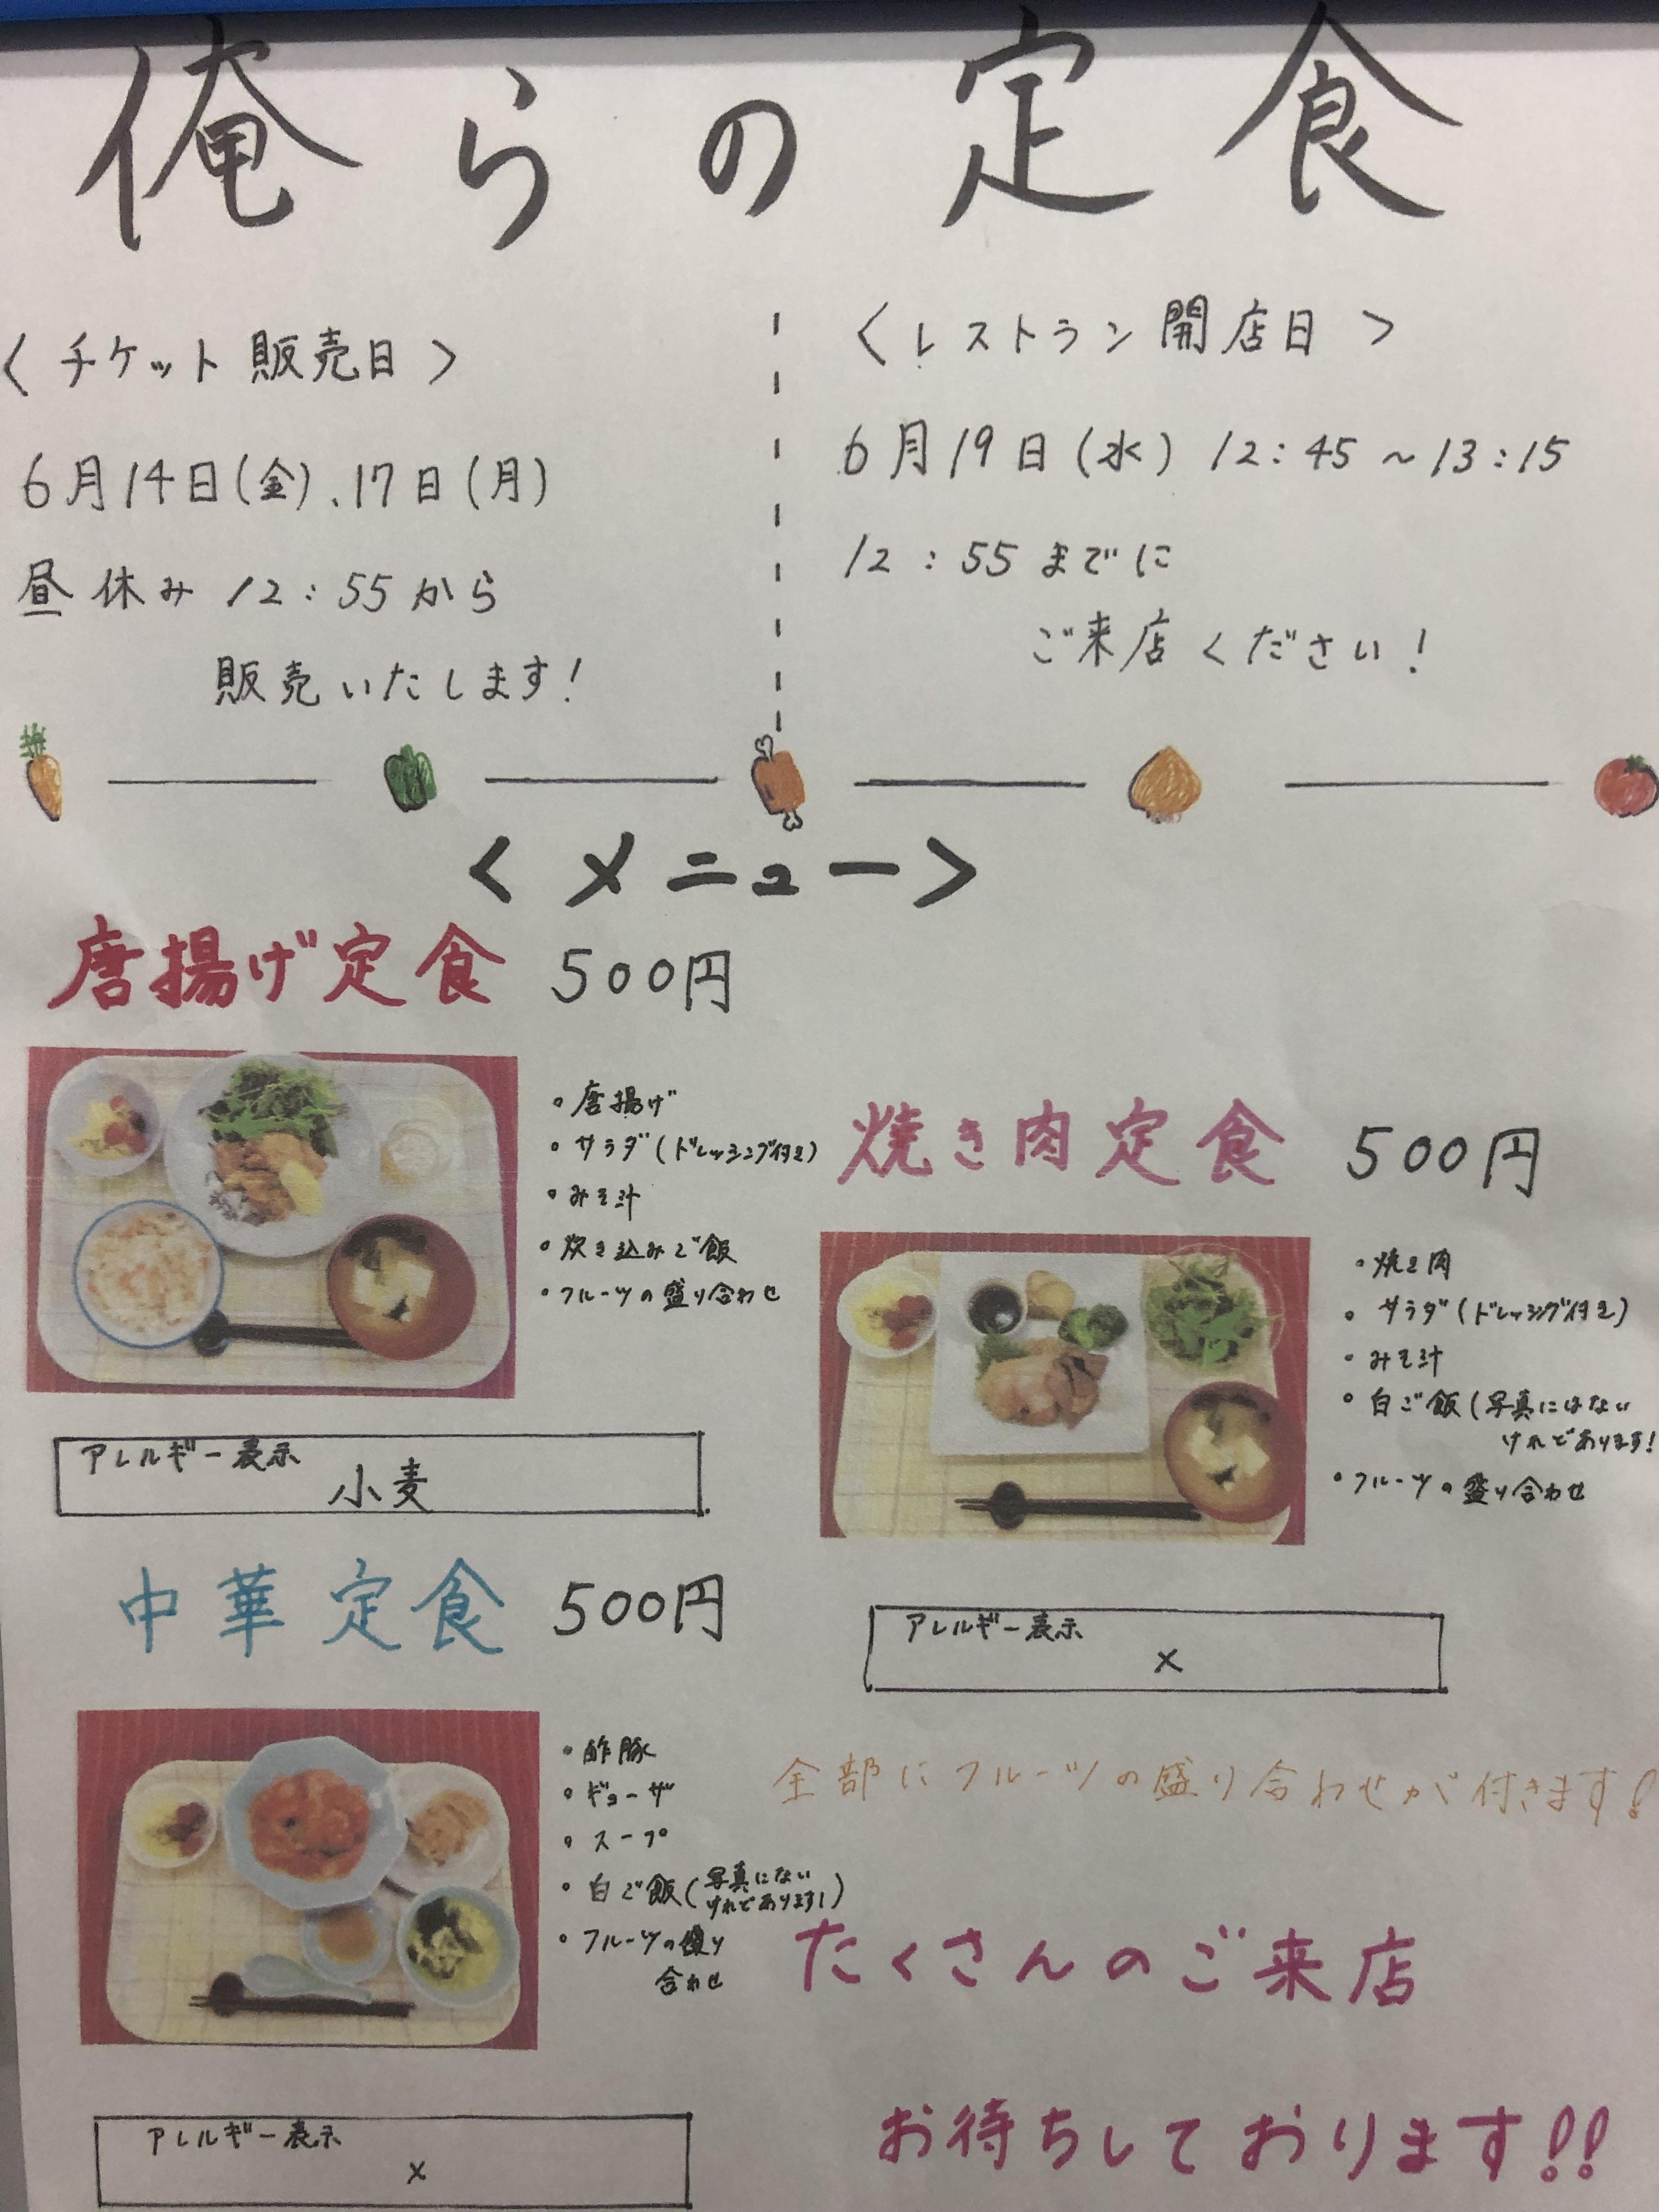 俺らの定食
〈チケット販売日〉
6月14日(金)、17日(月)
昼休み 12:55から
販売いたします!
〈レストラン開店日〉
6月19日(水) 12:45~13:15
12:55までに
ご来店ください!
<メニュー>
唐揚げ定食 500円
・唐揚げ
・サラダ(ドレッシング付き)
・みそ汁
・炊き込みご飯
・フルーツの盛り合わせ
アレルギー表示
小麦
焼き肉定食 500円
・焼き肉
・サラダ(ドレッシング付き)
・みそ汁
・白ご飯(写真にはない
けれどあります!
・フルーツの盛り合わせ
アレルギー表示
×
中華定食 500円
・酢豚
・ギョーザ
・スープ
・白ご飯(写真にない
けれどあります!)
・フルーツの盛り
合わせ
アレルギー表示
×
全部にフルーツの盛り合わせが付きます!
たくさんのご来店
お待ちしております!!